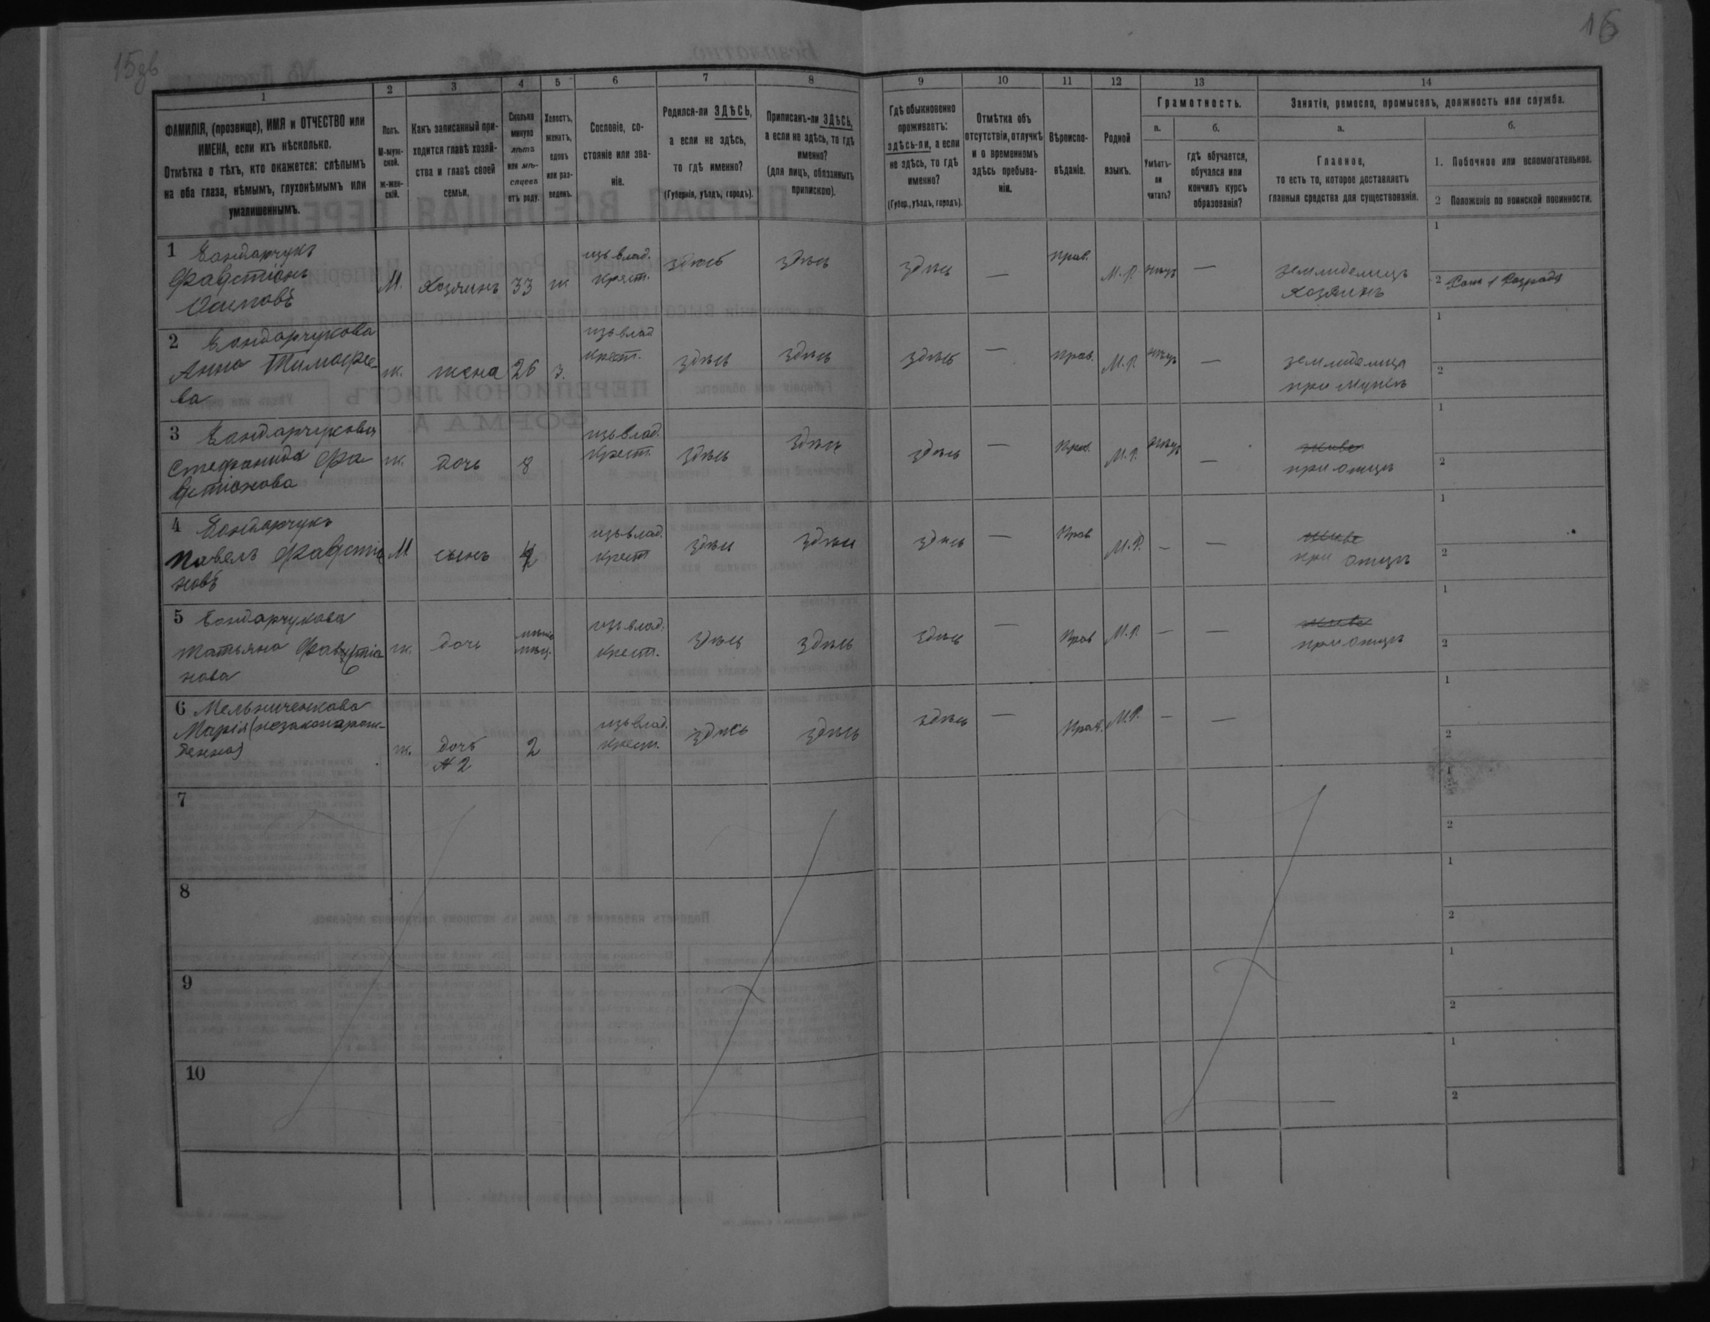 15об
16
1
2
3
4
5
6
7
8
9
10
11
12
13
14
ФАМИЛІЯ, (прозвище), ИМЯ и ОТЧЕСТВО или
ИМЕНА, если ихъ нѣсколько.
Отмѣтка о тѣхъ, кто окажется: слѣпымъ
на оба глаза, нѣмымъ, глухонѣмымъ или
умалишеннымъ.
Полъ.
М-муж-
ской.
Ж-жен-
скій.
Какъ записанный при-
ходится главѣ хозяй-
ства и главѣ своей
семьи.
Сколько
минуло
лѣтъ
или мѣ-
сяцевъ
отъ роду.
Холостъ,
женатъ,
вдовъ
или раз-
веденъ.
Сословіе, со-
стояніе или зва-
ніе.
Родился-ли ЗДѢСЬ,
а если не здѣсь,
то гдѣ именно?
(Губернія, уѣздъ, городъ).
Приписанъ-ли ЗДѢСЬ,
а если не здѣсь, то гдѣ
именно?
(для лицъ, обязанныхъ
припискою).
Гдѣ обыкновенно
проживаетъ:
здѣсь-ли, а если
не здѣсь, то гдѣ
именно?
(Губер., уѣздъ, городъ).
Отмѣтка объ
отсутствіи, отлучкѣ
и о временномъ
здѣсь пребыва-
ніи.
Вѣроиспо-
вѣданіе.
Родной
языкъ.
Грамотность.
а.
Умѣетъ-
ли
читать?
б.
гдѣ обучается,
обучался или
кончилъ курсъ
образованія?
Занятія, ремесло, промыселъ, должность или служба.
а.
Главное,
то есть то, которое доставляетъ
главныя средства для существованія.
б.
1. Побочное или вспомогательное.
2 Положеніе по воинской повинности.
1 Бондарчукъ
Фавстіонъ
Осиповъ
М.
Хозяинъ
33
ж
изъ влад.
крест.
здѣсь
здѣсь
здѣсь
—
прав.
М.Р.
нѣтъ
—
земледелецъ
хозяинъ
1
2 Рат. 1 Разряда
2 Бондарчукова
Анна Тимофѣе
ва
ж.
жена
26
з.
изъ влад
крест.
здѣсь
здѣсь
здѣсь
—
прав.
М.Р.
нѣтъ
—
земледелица
при мужѣ
1
2
3 Бондарчукова
Стефанида Фа
встіонова
ж.
дочь
8
изъ влад.
крест.
здѣсь
здѣсь
здѣсь
—
Прав.
М.Р.
нѣтъ
—
при отцѣ
1
2
4 Бондарчукъ
Павелъ Фавстіо
новъ
М
сынъ
изъ влад.
крест
здѣсь
здѣсь
здѣсь
—
Прав
М.Р.
—
—
при отцѣ
1
2
5 Бондарчукова
Татьяна Фавстіо
нова
ж.
дочь
изъ влад.
крест.
здѣсь
здѣсь
здѣсь
—
Прав
М.Р.
—
—
при отцѣ
1
2
6 Мельниченкова
Марія (незаконорож-
денная)
ж.
дочь
№ 2
2
изъ влад.
крест.
здѣсь
здѣсь
здѣсь
—
Прав.
М.Р.
—
—
1
2
7
1
2
8
1
2
9
1
2
10
1
2